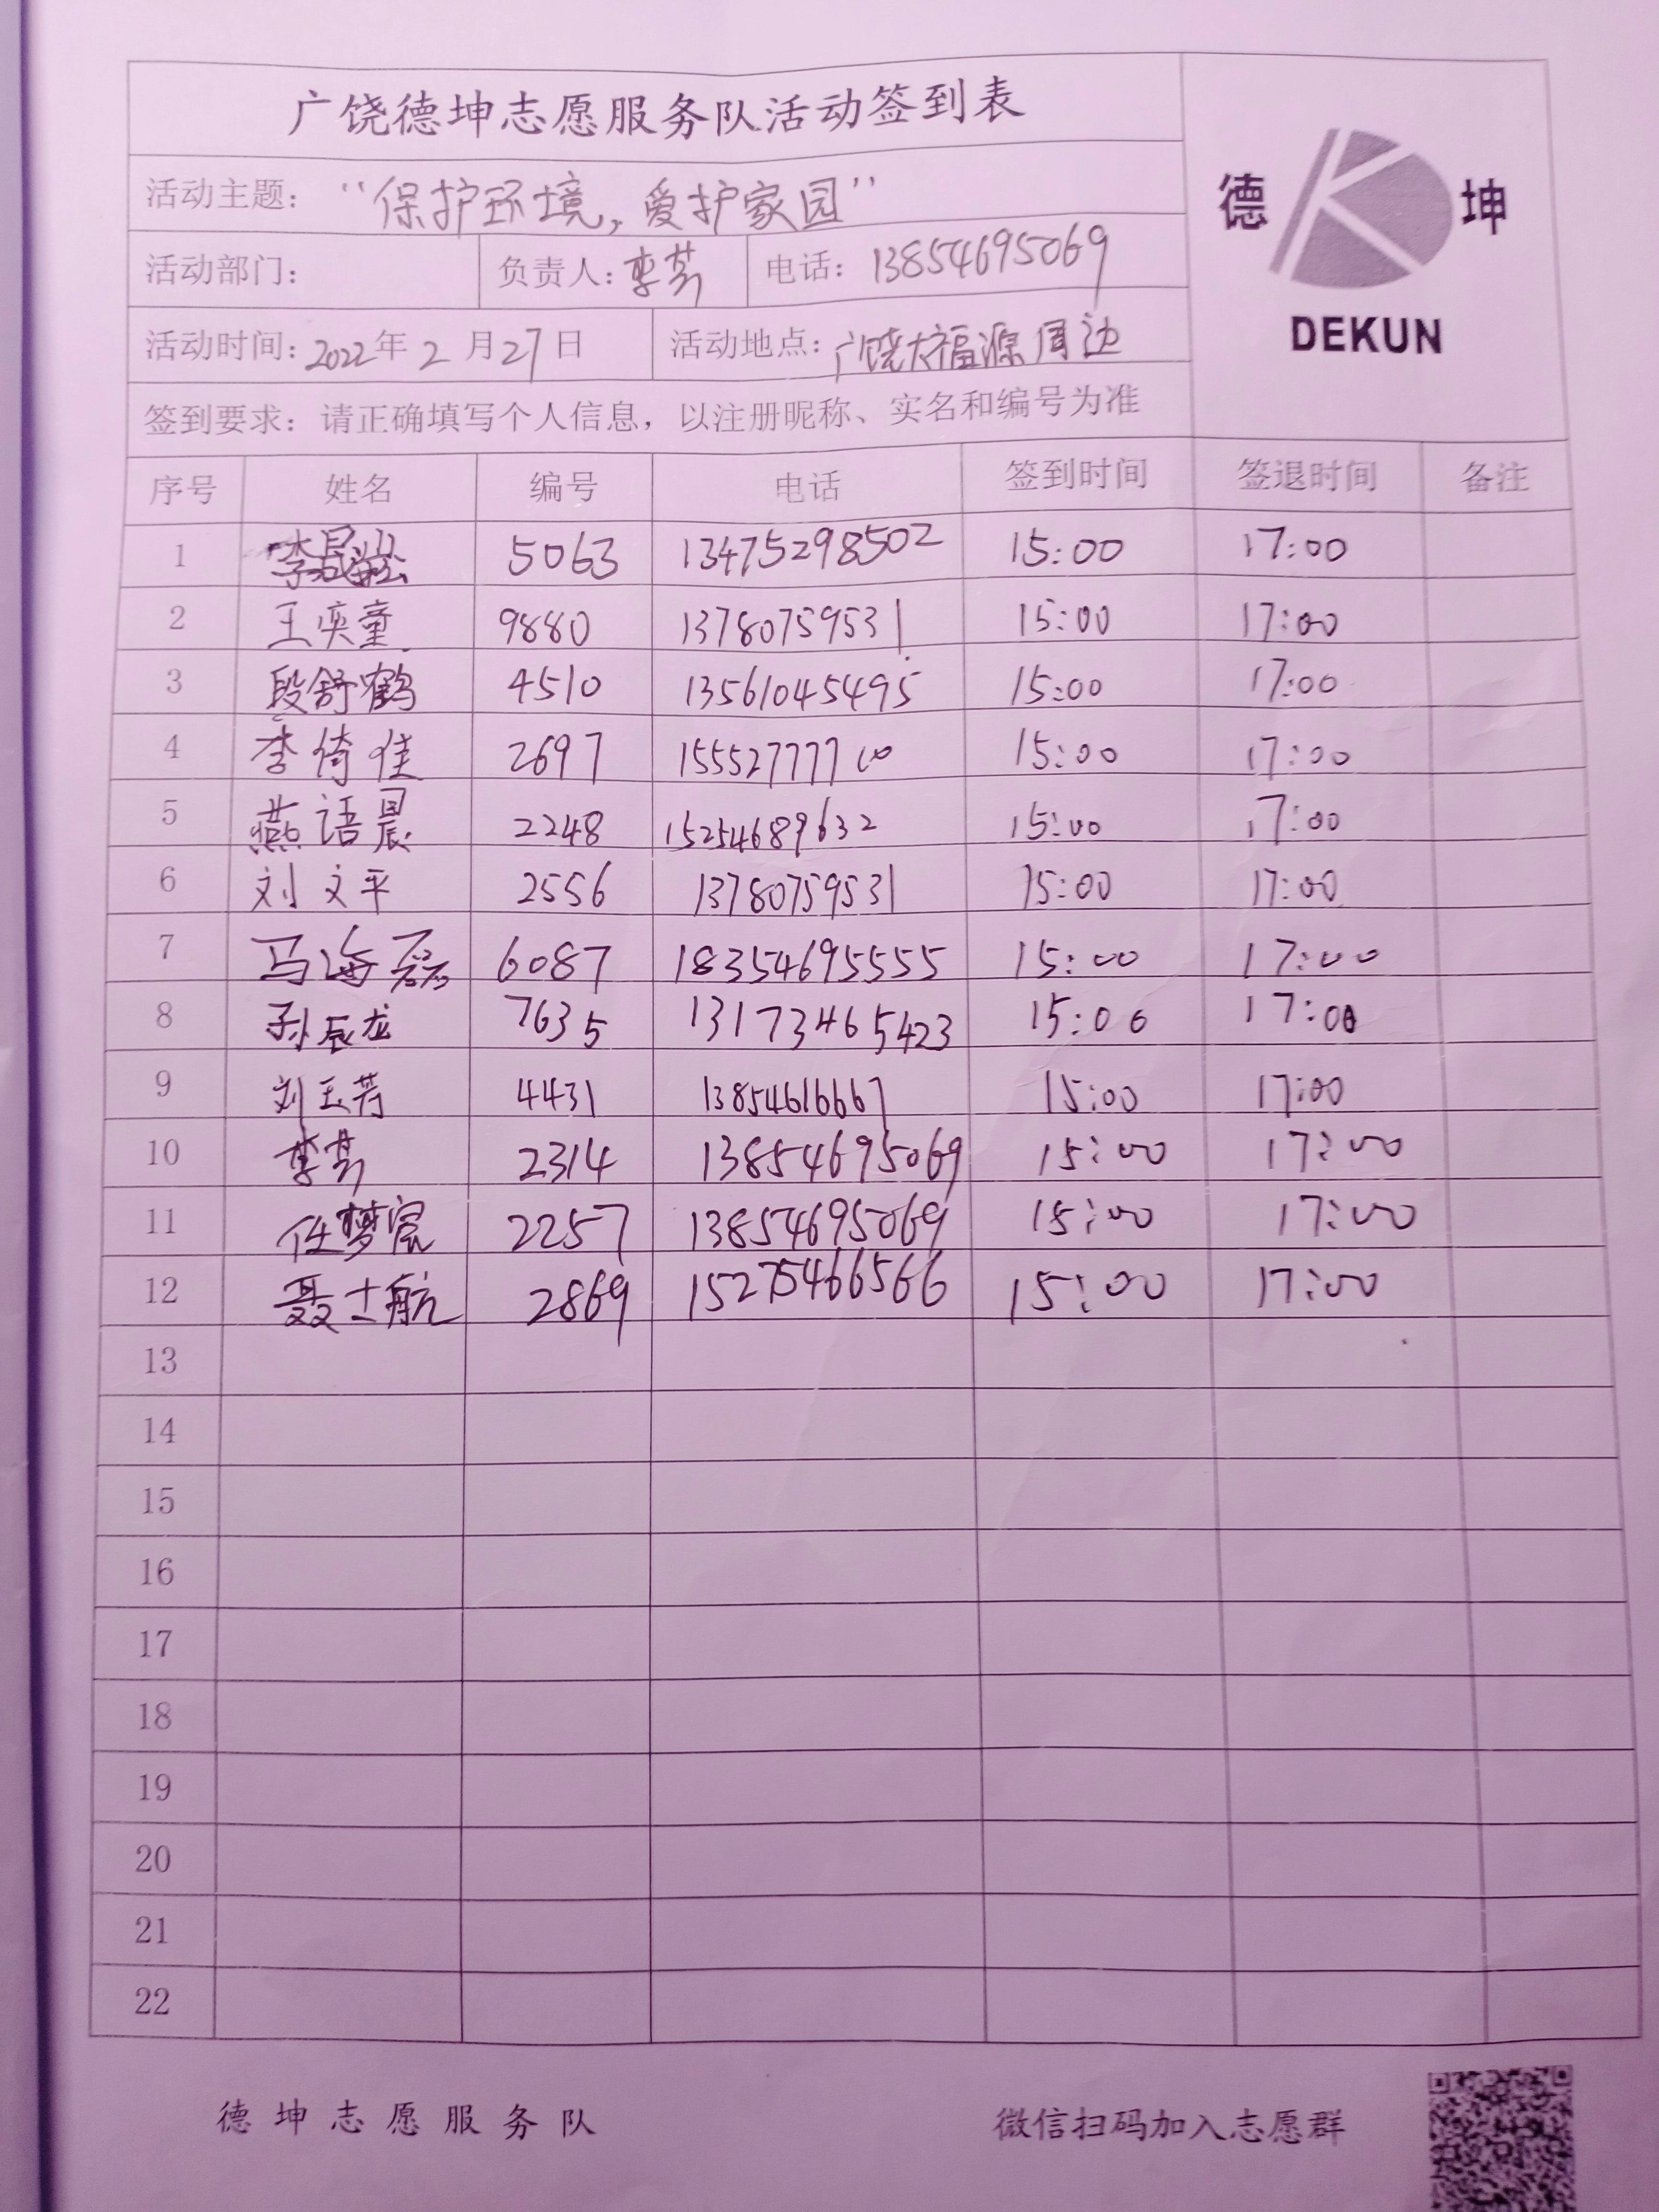 广饶德坤志愿服务队活动签到表
德 坤
DEKUN
活动主题：“保护环境，爱护家园”
活动部门： 负责人：李芳 电话：13854695069
活动时间：2022年2月27日 活动地点：广饶大福源周边
签到要求：请正确填写个人信息，以注册昵称、实名和编号为准
序号 姓名 编号 电话 签到时间 签退时间 备注
1 5063 13475298502 15:00 17:00
2 王奕童 9880 13780759531 15:00 17:00
3 段舒鹤 4510 13561045495 15:00 17:00
4 李倚佳 2697 15552777700 15:00 17:00
5 燕语晨 2248 15254689632 15:00 17:00
6 刘文平 2556 13780759531 15:00 17:00
7 马海磊 6087 18354695555 15:00 17:00
8 孙辰龙 7635 13173465423 15:00 17:00
9 刘玉芳 4431 13854616667 15:00 17:00
10 李芳 2314 13854695069 15:00 17:00
11 任梦宸 2257 13854695069 15:00 17:00
12 聂士航 2869 15275466566 15:00 17:00
13
14
15
16
17
18
19
20
21
22
德坤志愿服务队 微信扫码加入志愿群